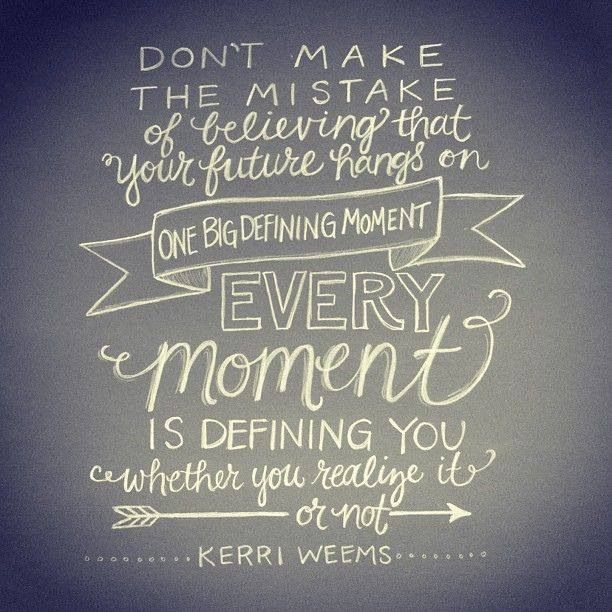 DON'T MAKE
THE MISTAKE
of believing that
your future hangs on
ONE BIG DEFINING MOMENT
EVERY
moment
IS DEFINING YOU
whether you realize it
or not
KERRI WEEMS